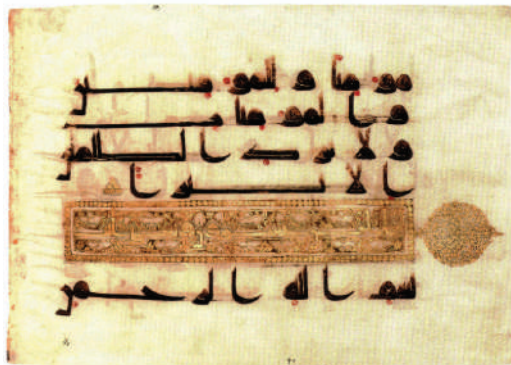 مومنا وللمومنين
والمومنات
ولا تزد الظلمين
الا تبارا
بسم الله الرحمن